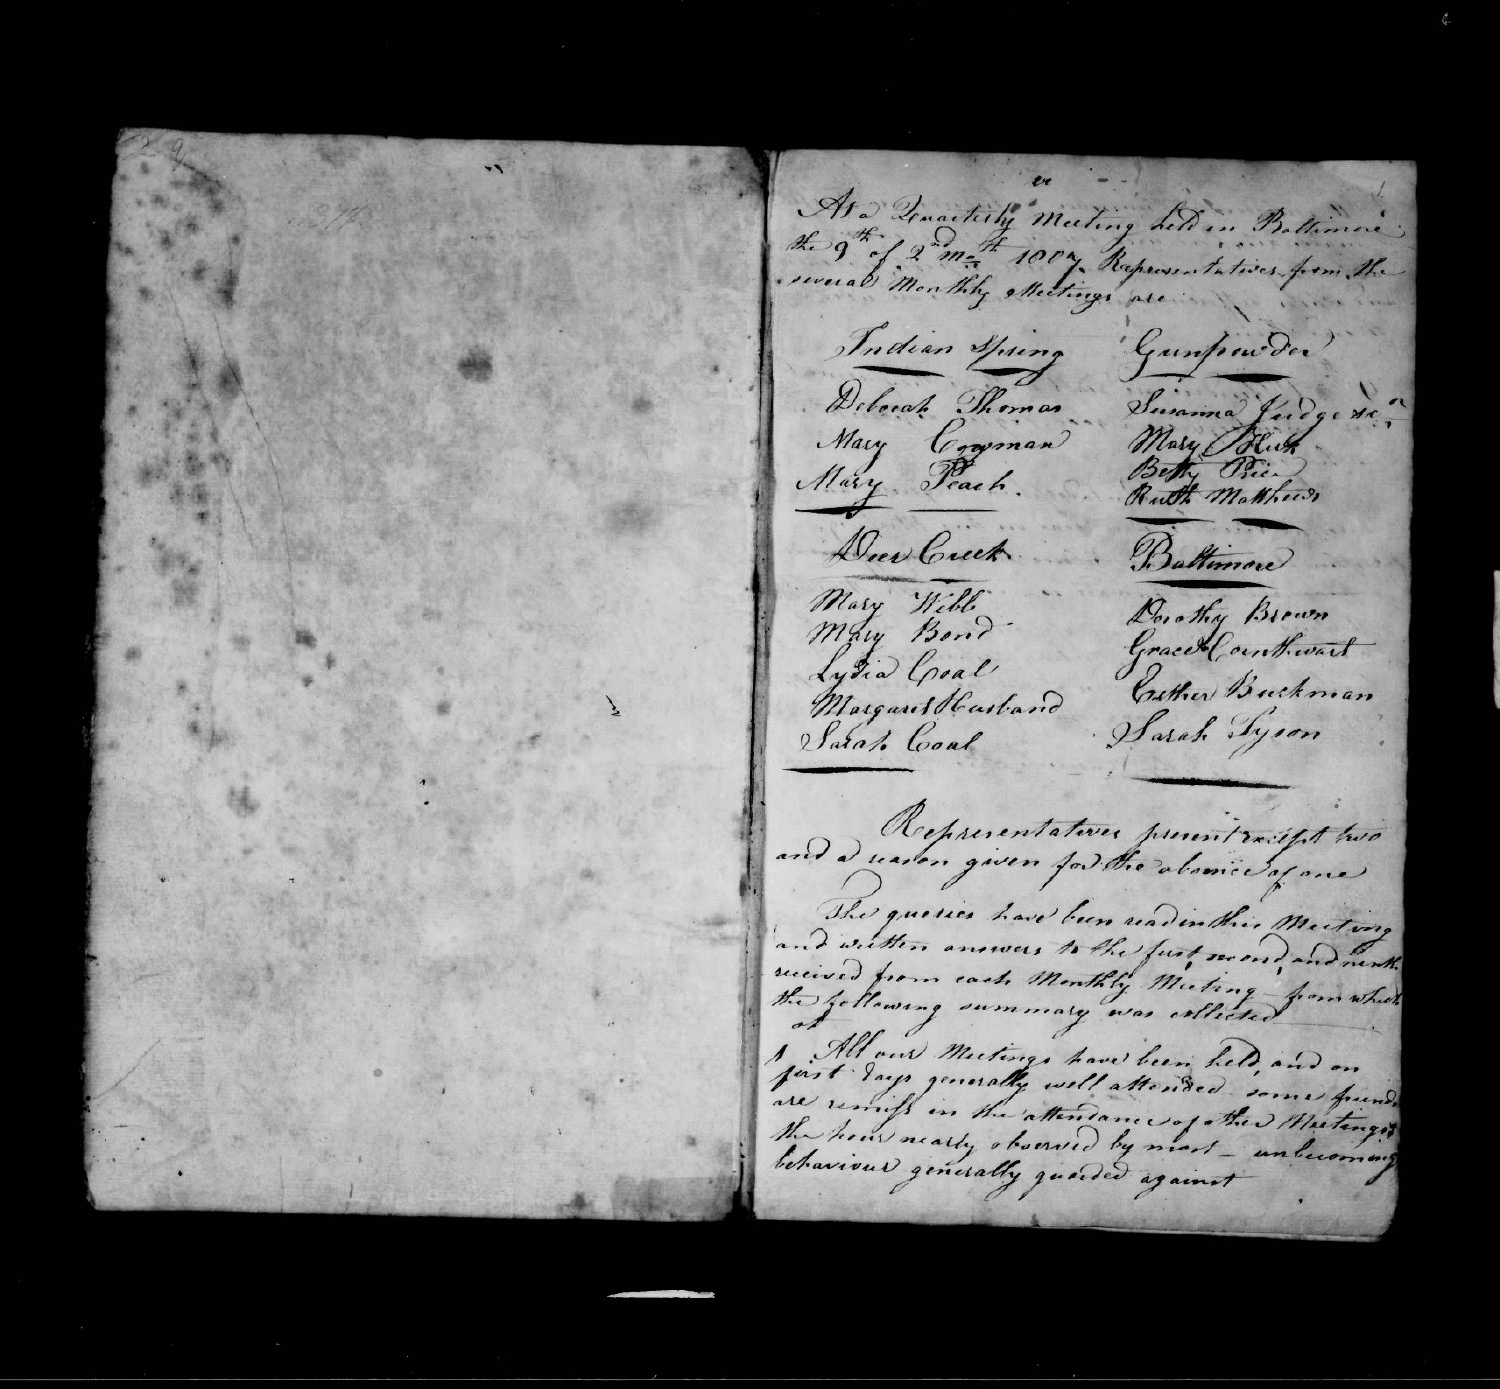 At a Quarterly Meeting held in Baltimore
the 9th of 2nd moth 1807. Representatives from the
several Monthly Meetings are
Indian Spring
Deborah Thomas
Mary Cowman
Mary Peach.
Deer Creek
Mary Webb
Mary Bond
Lydia Coal
Margaret Husband
Sarah Coal
Gunpowder
Susanna Judge
Mary
Betty Price
Ruth Matthews
Baltimore
Dorothy Brown
Grace Cornthwart
Esther Buckman
Sarah Tyson
Representatives present except two
and a reason given for the absence of one
The queries have been read in this Meeting
and written answers to the first, second, and ninth
received from each Monthly Meeting - from which
the following summary was collected
1st All our Meetings have been held, and on
first days generally well attended some friends
are remiss in the attendance of other Meetings
the hour nearly observed by most - unbecoming
behaviour generally guarded against